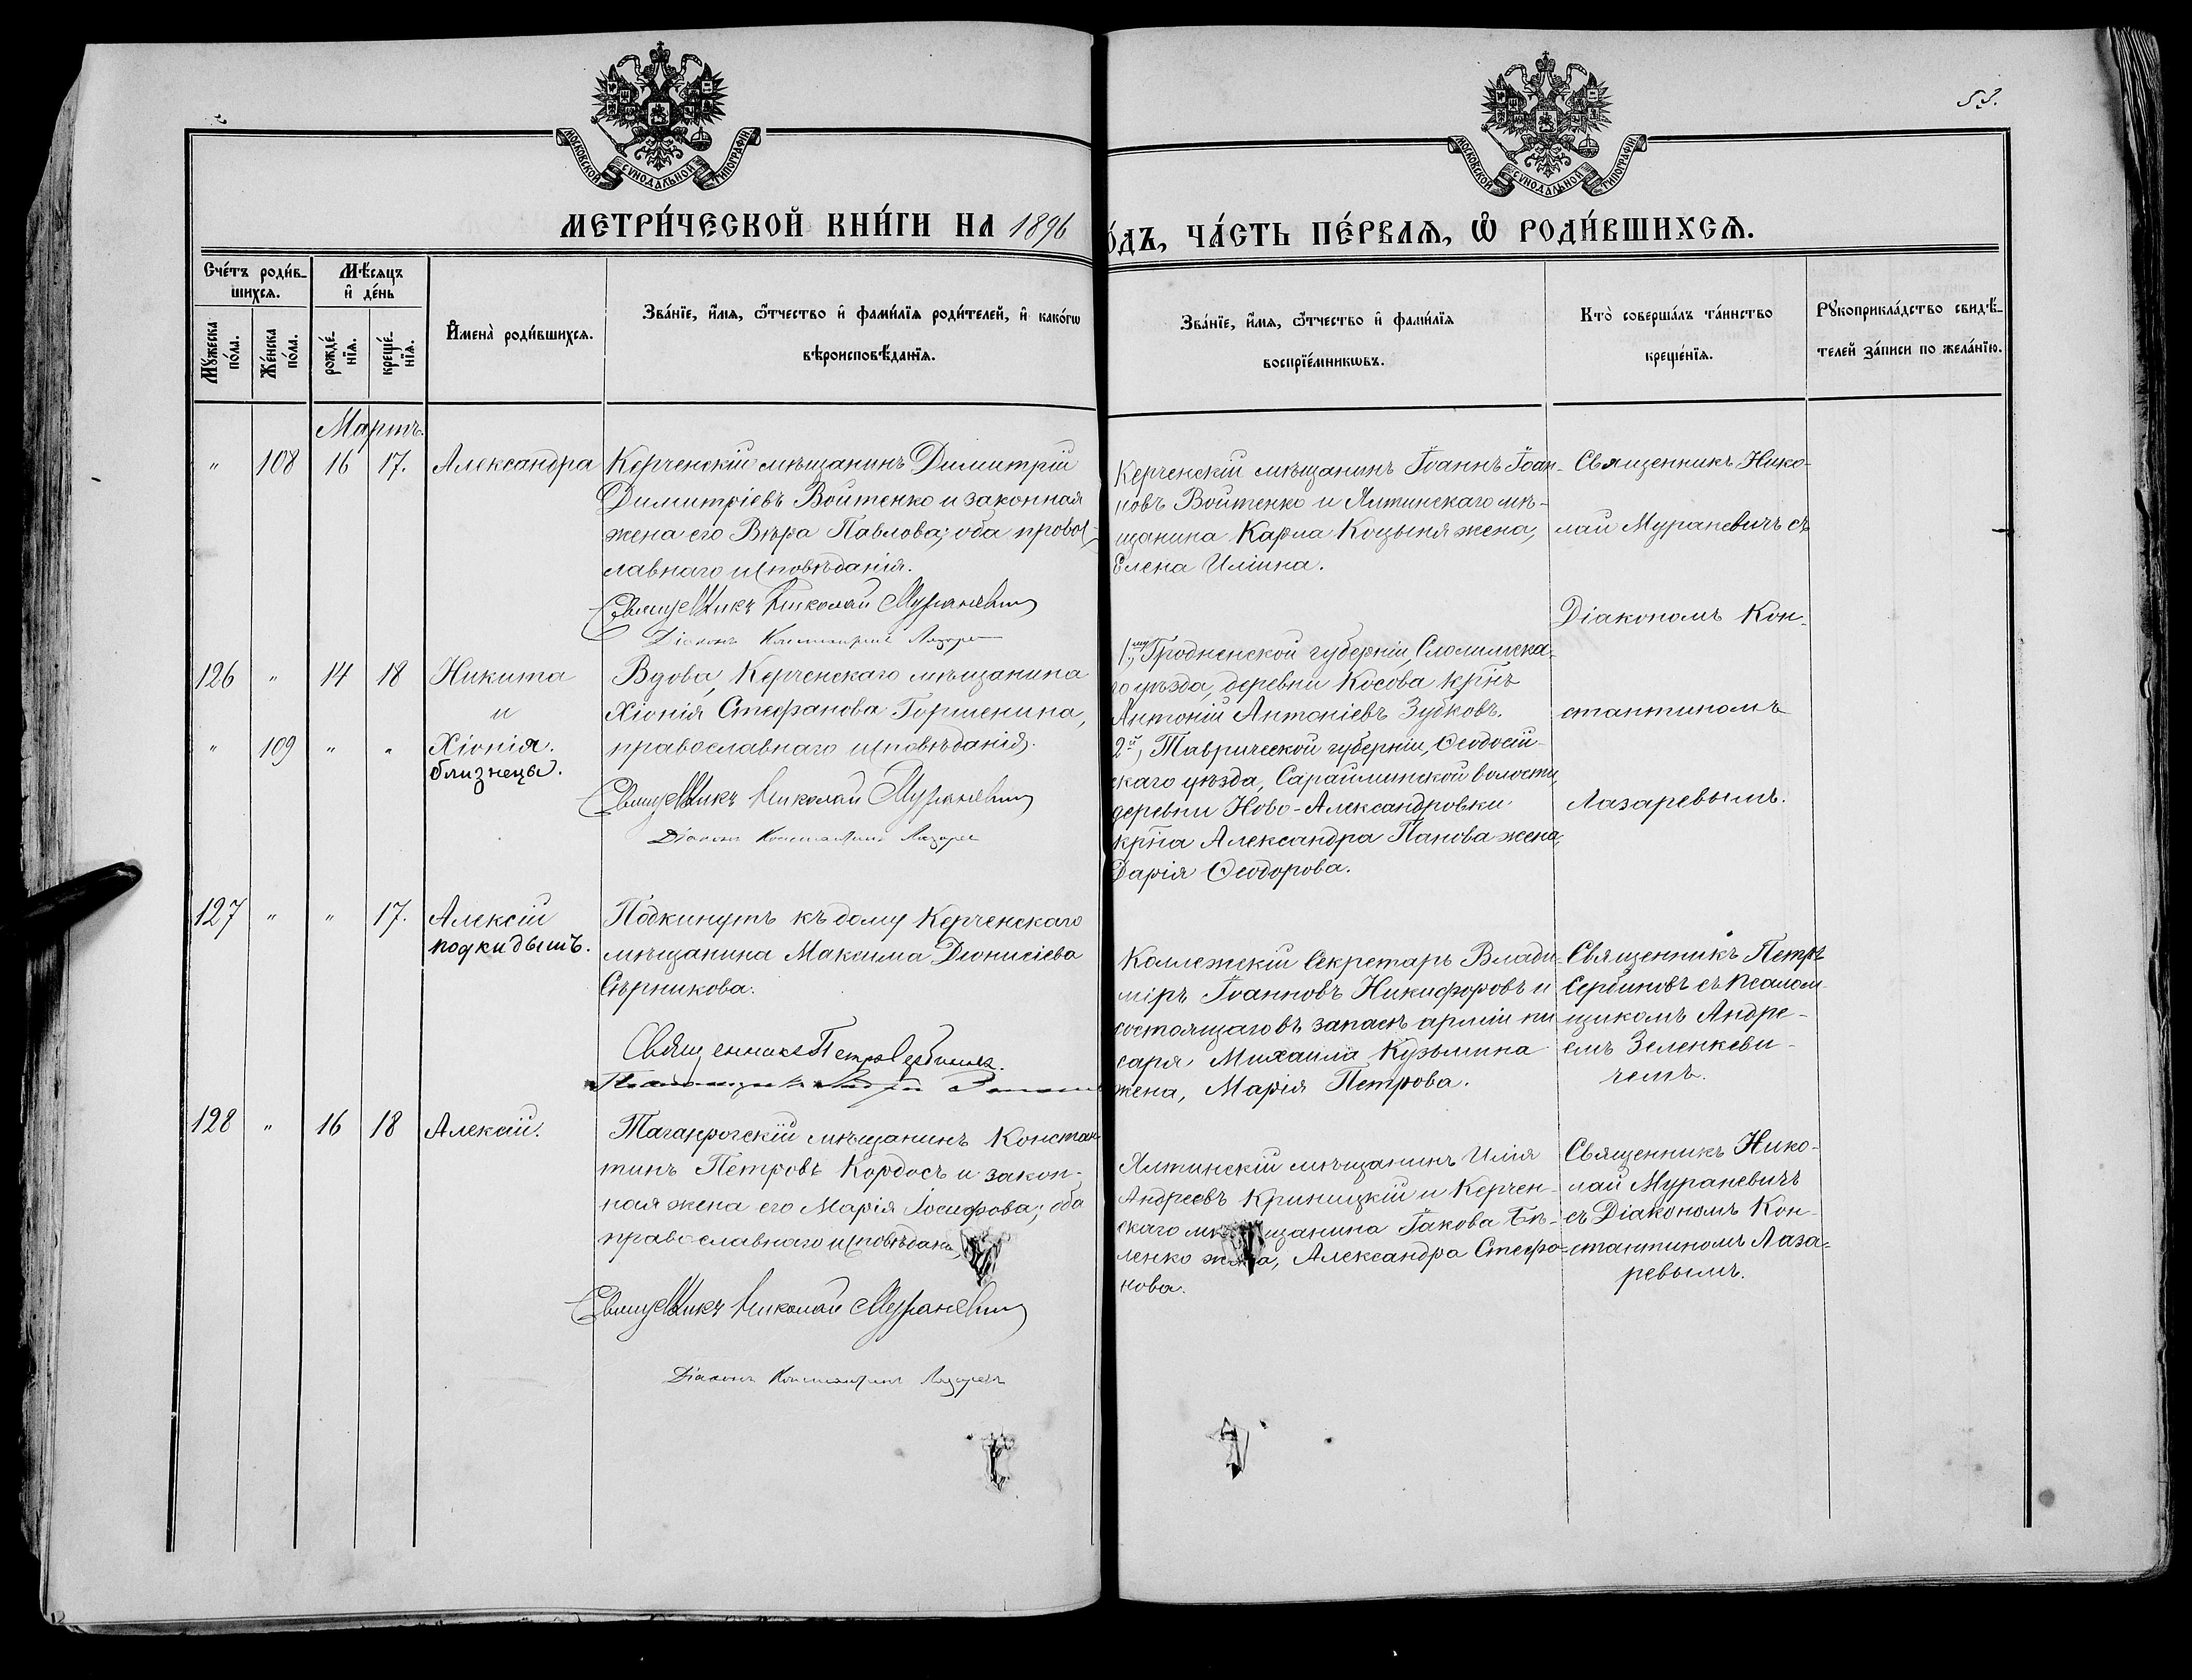 53.
МОСКОВСКОЙ СѴНОДАЛЬНОЙ ТИПОГРАФІИ
МОСКОВСКОЙ СѴНОДАЛЬНОЙ ТИПОГРАФІИ
МЕТРИ́ЧЕСКОЙ КНИ́ГИ НА 1896
О́ДЪ, ЧА́СТЬ ПЕ́РВАѦ, Ѡ РОДИ́ВШИХСѦ.
Сче́тъ роди́в-
шихсѧ.
Мѣ́сѧцъ
и҆ де́нь
Мꙋжеска
по́ла.
Же́нска
по́ла.
рожде́-
нїѧ.
креще́-
нїѧ.
И҆мена̀ роди́вшихсѧ.
Зва́нїе, и҆́мѧ, ѻ҆́тчество и҆ фами́лїѧ роди́телей, и҆ како́гѡ
вѣроисповѣ́данїѧ.
Зва́нїе, и҆́мѧ, ѻ҆́тчество и҆ фами́лїѧ
воспрїе́мникѡвъ.
Кто̀ соверша́лъ та́инство
креще́нїѧ.
Рꙋкоприкла́дство свидѣ́-
телей за́писи по жела́нїю.
Мартъ.
" 108 16 17. Александра
Керченскій мѣщанинъ Димитрій
Димитріевъ Войтенко и законная
жена его Вѣра Павлова; оба правос-
лавнаго исповѣданія.
Священникъ Николай Мураневич
Діаконъ Константинъ Лазарев
Керченскій мѣщанинъ Іоаннъ Іоан-
новъ Войтенко и Ялтинскаго мѣ-
щанина Карла Коцыня жена,
Елена Иліина.
Священникъ Нико-
лай Мураневичъ съ
Діакономъ Кон-
стантиномъ
Лазаревымъ.
126 " 14 18 Никита
и
" 109 " " Хіонія.
близнецы.
Вдова, Керченскаго мѣщанина
Хіонія Стефанова Горшенина,
православнаго исповѣданія.
Священникъ Николай Мураневич
Діаконъ Константинъ Лазарев
1му, Гродненской губерніи, Слонимска-
го уѣзда, деревни Косова кр҃нъ
Антоній Антоніевъ Зубковъ.
2й, Таврической губерніи, Ѳеодосій-
скаго уѣзда, Сарайминской волости,
деревни Ново-Александровки
кр҃на Александра Панова жена,
Дарія Ѳеодорова.
127 " " 17. Алексій
подкидышъ.
Подкинутъ къ дому Керченскаго
мѣщанина Максима Діонисіева
Сѣрникова.
Священникъ Петръ Сербиновъ.
Коллежскій Секретарь Влади-
міръ Іоанновъ Никифоровъ и
состоящаго въ запасѣ арміи пи
саря, Михаила Кузьмина
жена, Марія Петрова.
Священникъ Петръ
Сербиновъ съ псалом
щикомъ Андре-
емъ Зеленкеви-
чемъ.
128 " 16 18 Алексій.
Таганрогскій мѣщанинъ Констан
тинъ Петровъ Кордосъ и закон-
ная жена его Марія Іосифова; оба
православнаго исповѣдані
Священникъ Николай Мураневич
Діаконъ Константинъ Лазаревъ
Ялтинскій мѣщанинъ Илія
Андреевъ Криницкій и Керчен-
скаго мѣщанина Іакова Бѣ-
ленко жена, Александра Стефа-
нова.
Священникъ Нико-
лай Мураневичъ
съ Діакономъ Кон-
стантиномъ Лаза-
ревымъ.